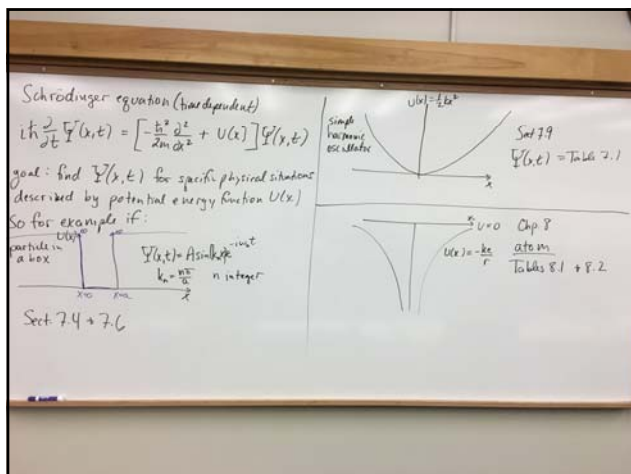 Schrödinger equation (time dependent)
iħ ∂/∂t Ψ(x,t) = [-ħ²/2m ∂²/∂x² + U(x)] Ψ(x,t)
goal: find Ψ(x,t) for specific physical situations
described by potential energy function U(x)
So for example if:
U(x) ∞ ∞
particle in
a box
Ψ(x,t) = A sin(kₙx)e^-iωₙt
kₙ = nπ/a n integer
x=0 x=a x
Sect. 7.4 + 7.6
U(x) = ½kx²
simple
harmonic
oscillator
Sect 7.9
Ψ(x,t) = Table 7.1
x
x U=0 Chp. 8
U(x) = -ke/r
atom
Tables 8.1 + 8.2